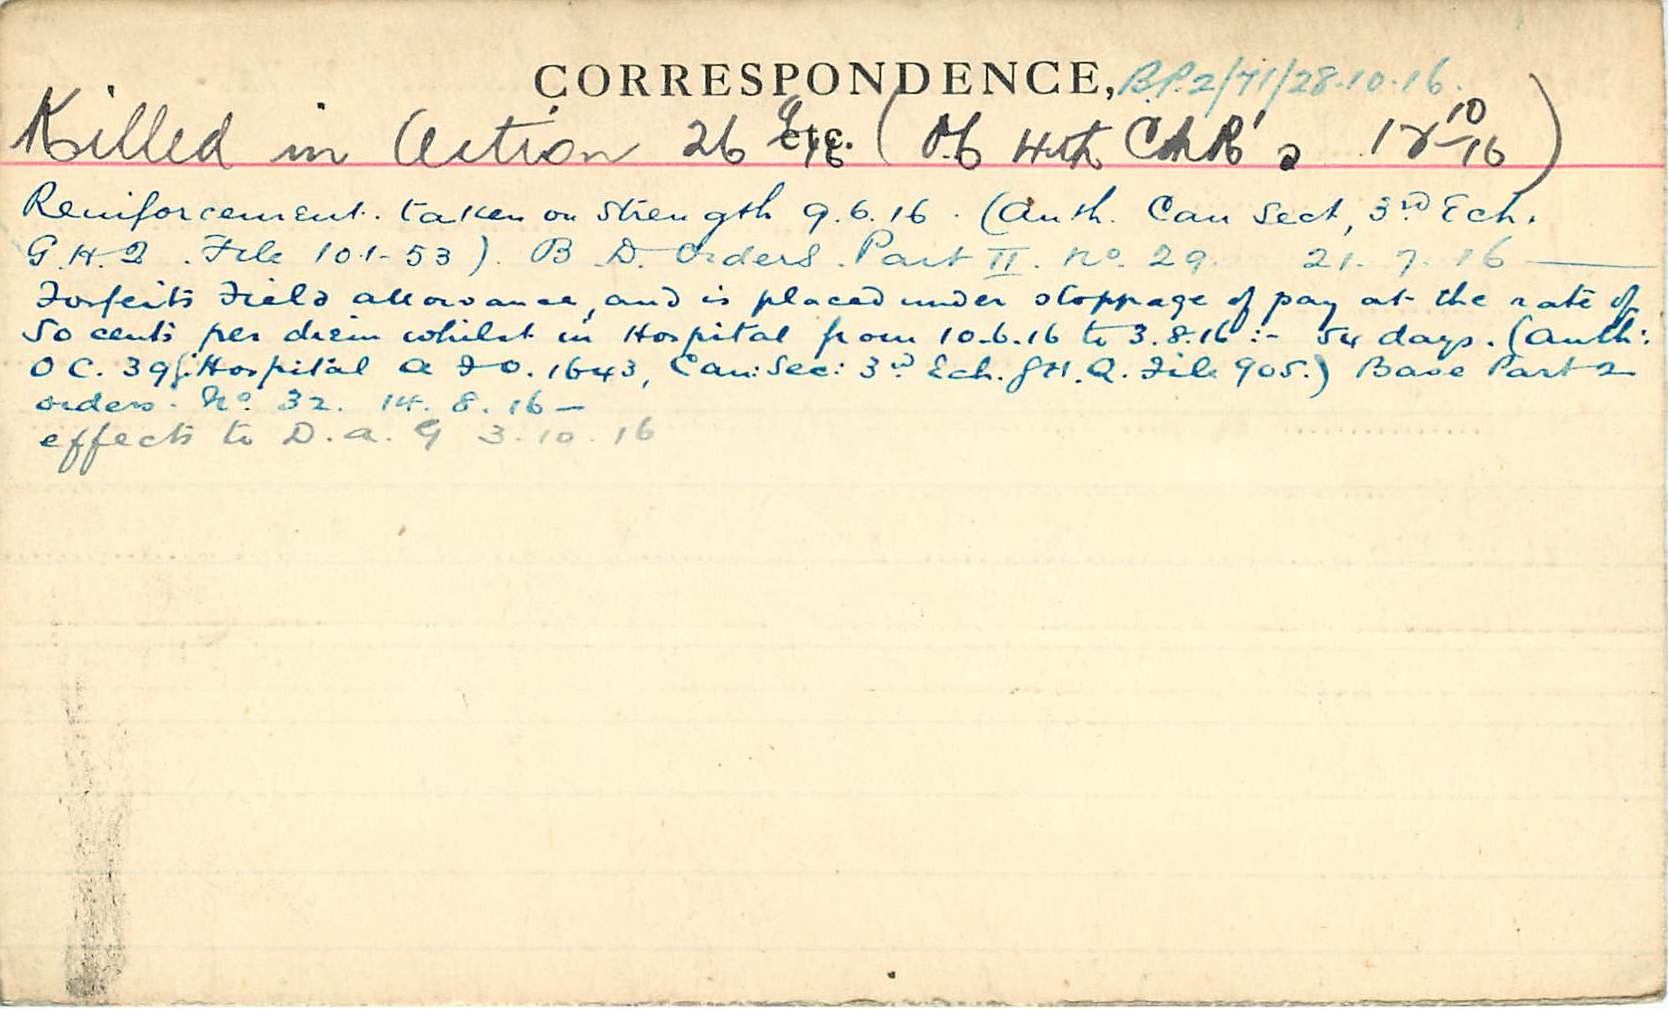 CORRESPONDENCE, B.P.2/71/28.10.16.
Killed in Action 26 9/16 etc. (O/C 4th CMR's 18-10-16)
Reinforcement. taken on Strength 9.6.16. (Auth. Can Sect, 3rd Ech.
G.H.Q. File 101-53). B.D. Orders. Part II. No. 29. 21. 7. 16
Forfeits Field allowance, and is placed under stoppage of pay at the rate of
50 cents per diem whilst in Hospital from 10.6.16 to 3.8.16:- 54 days. (Auth:
OC. 39 G. Hospital A F O. 1643, Can: Sec: 3rd Ech. GH.Q. File 905.) Base Part 2
orders. No. 32. 14. 8. 16-
effects to D.A.G 3.10.16